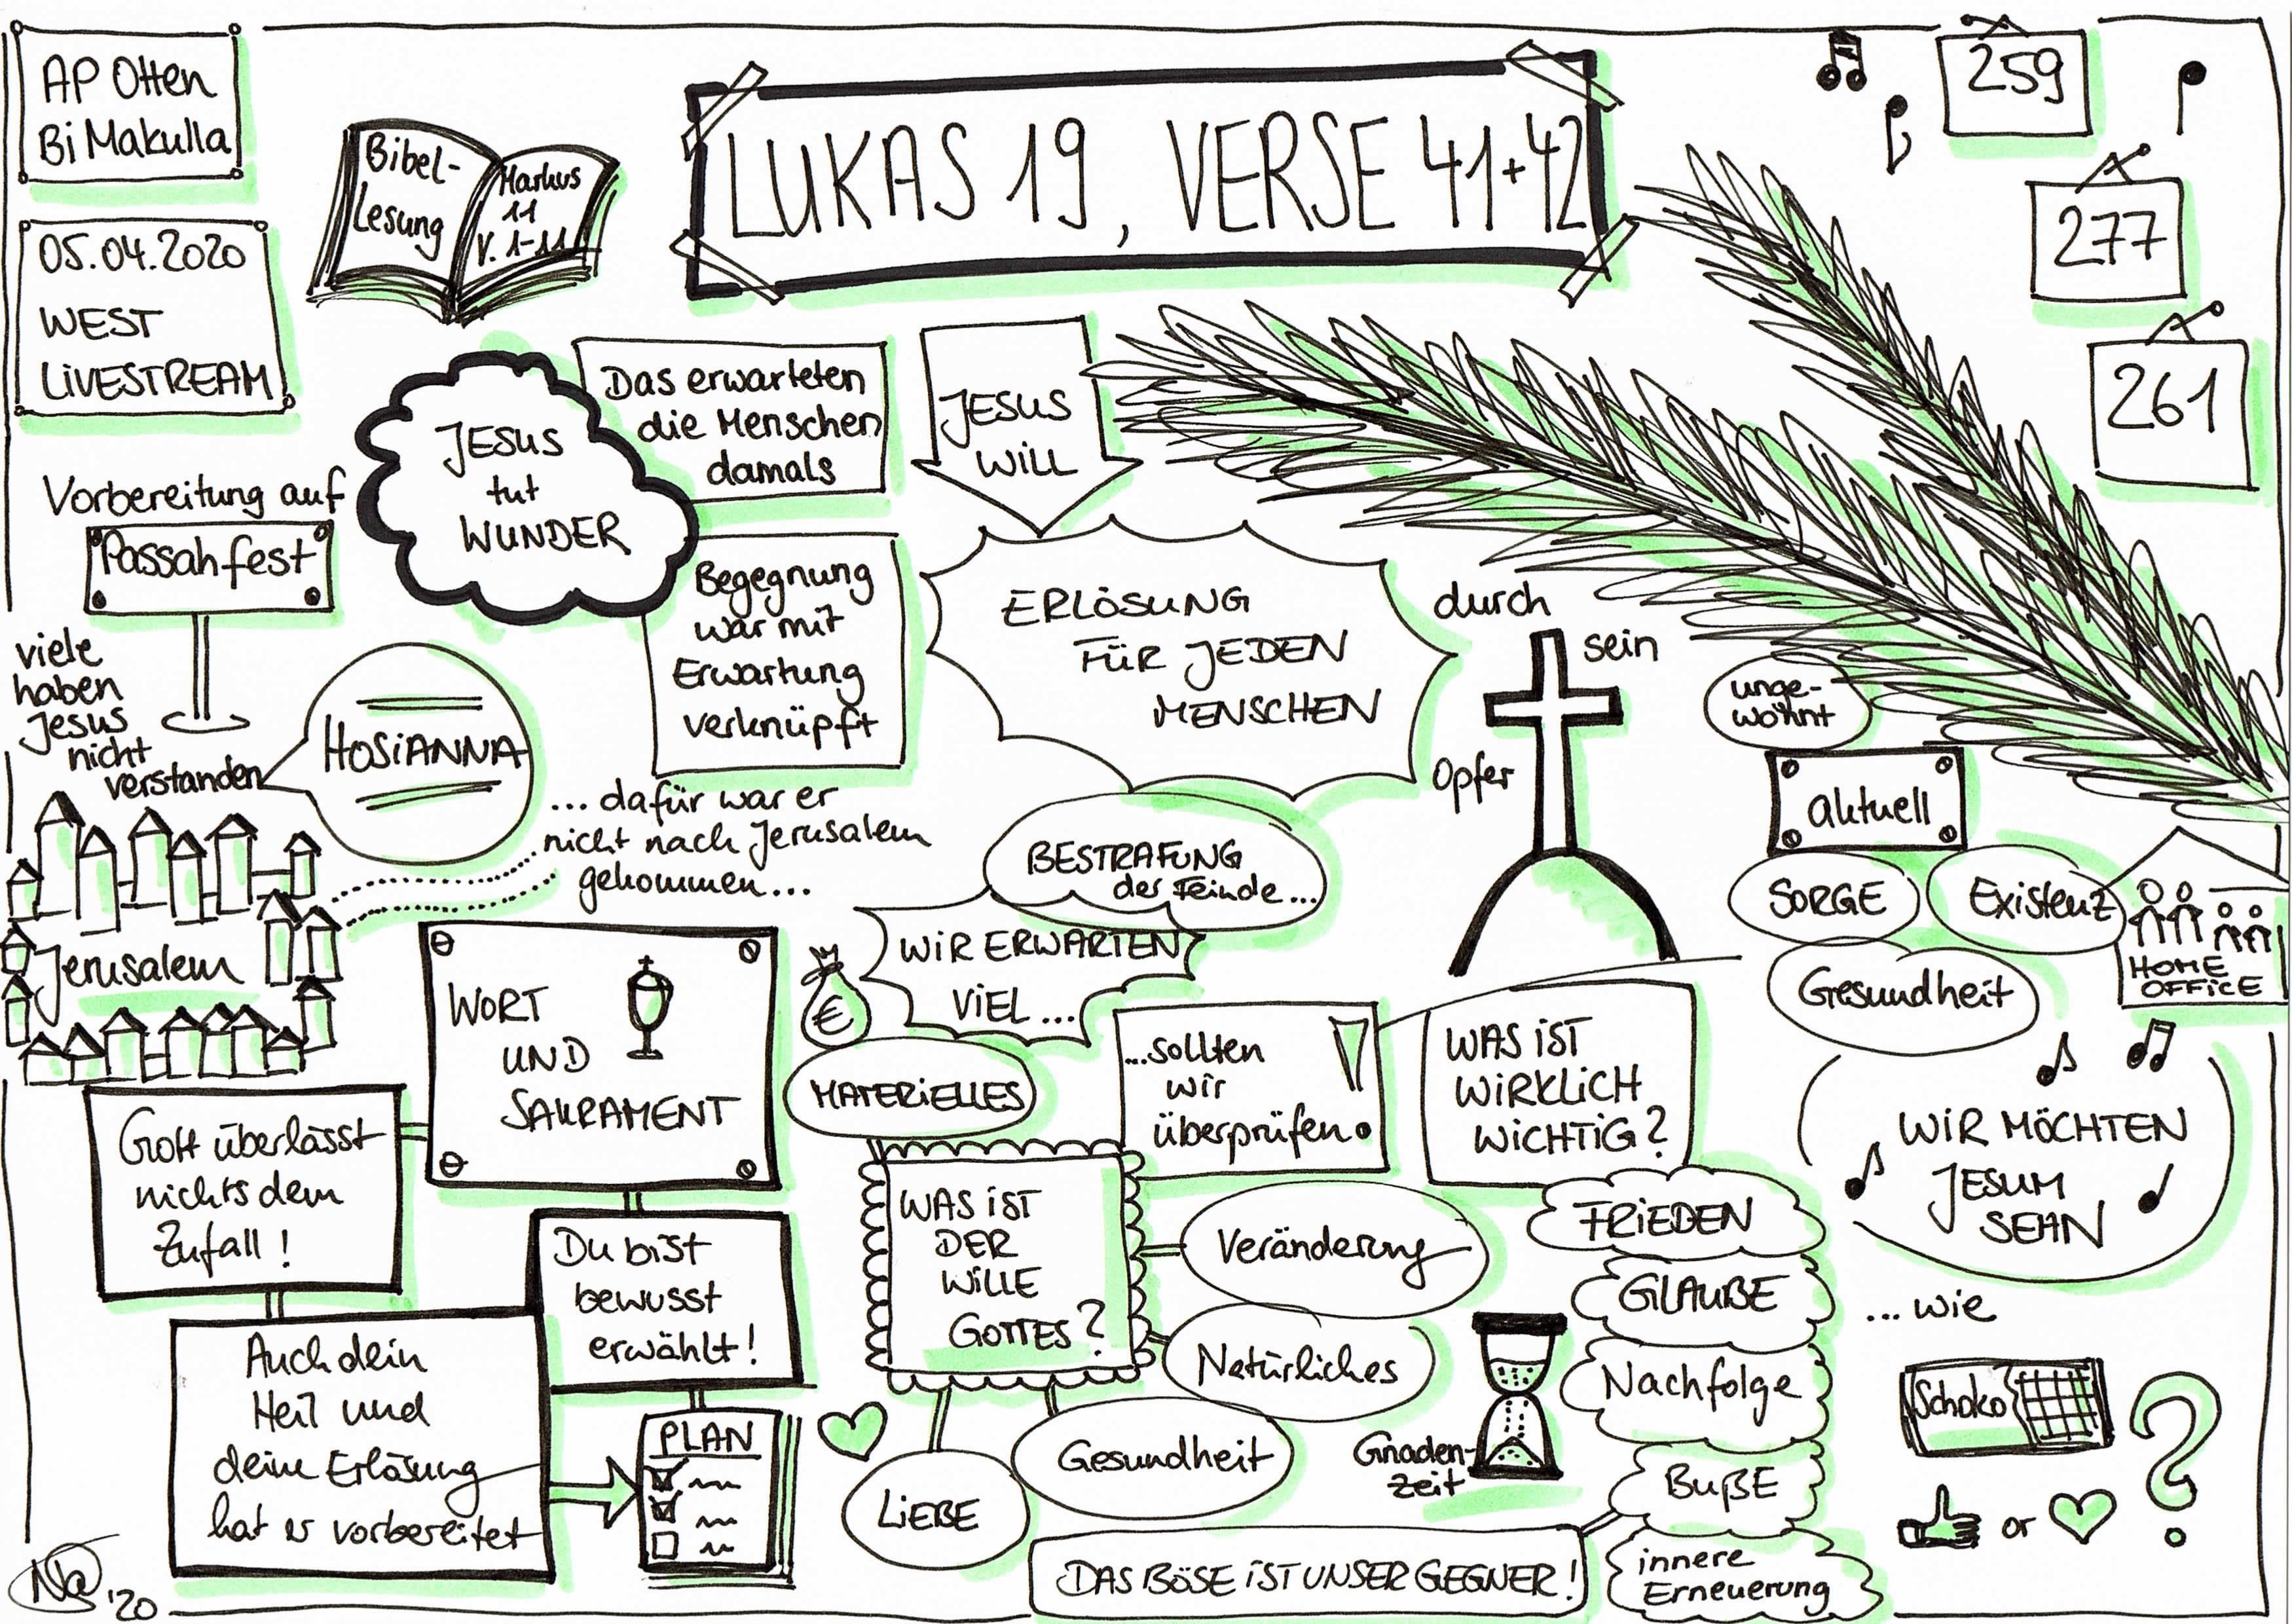 AP Otten
Bi Makulla
05.04.2020
WEST
LIVESTREAM
Bibel-
Lesung
Markus
11
V. 1-11
LUKAS 19, VERSE 41+42
259
277
261
Vorbereitung auf
Passahfest
JESUS
tut
WUNDER
Das erwarteten
die Menschen
damals
Begegnung
war mit
Erwartung
verknüpft
JESUS
WILL
ERLÖSUNG
FÜR JEDEN
MENSCHEN
durch
sein
Opfer
viele
haben
Jesus
nicht
verstanden
HOSIANNA
... dafür war er
nicht nach Jerusalem
gekommen...
Jerusalem
BESTRAFUNG
der Feinde...
WIR ERWARTEN
VIEL ...
€
MATERIELLES
...sollten
wir
überprüfen.
WAS IST
WIRKLICH
WICHTIG?
unge-
wohnt
aktuell
SORGE
Existenz
Gesundheit
HOME
OFFICE
WORT
UND
SAKRAMENT
Gott überlässt
nichts dem
Zufall!
Du bist
bewusst
erwählt!
Auch dein
Heil und
deine Erlösung
hat er vorbereitet
PLAN
WAS IST
DER
WILLE
GOTTES?
Veränderung
Natürliches
Gesundheit
LIEBE
Gnaden-
zeit
FRIEDEN
GLAUBE
Nachfolge
BUßE
innere
Erneuerung
DAS BÖSE IST UNSER GEGNER!
WIR MÖCHTEN
JESUM
SEHN
... wie
Schoko
or
?
'20